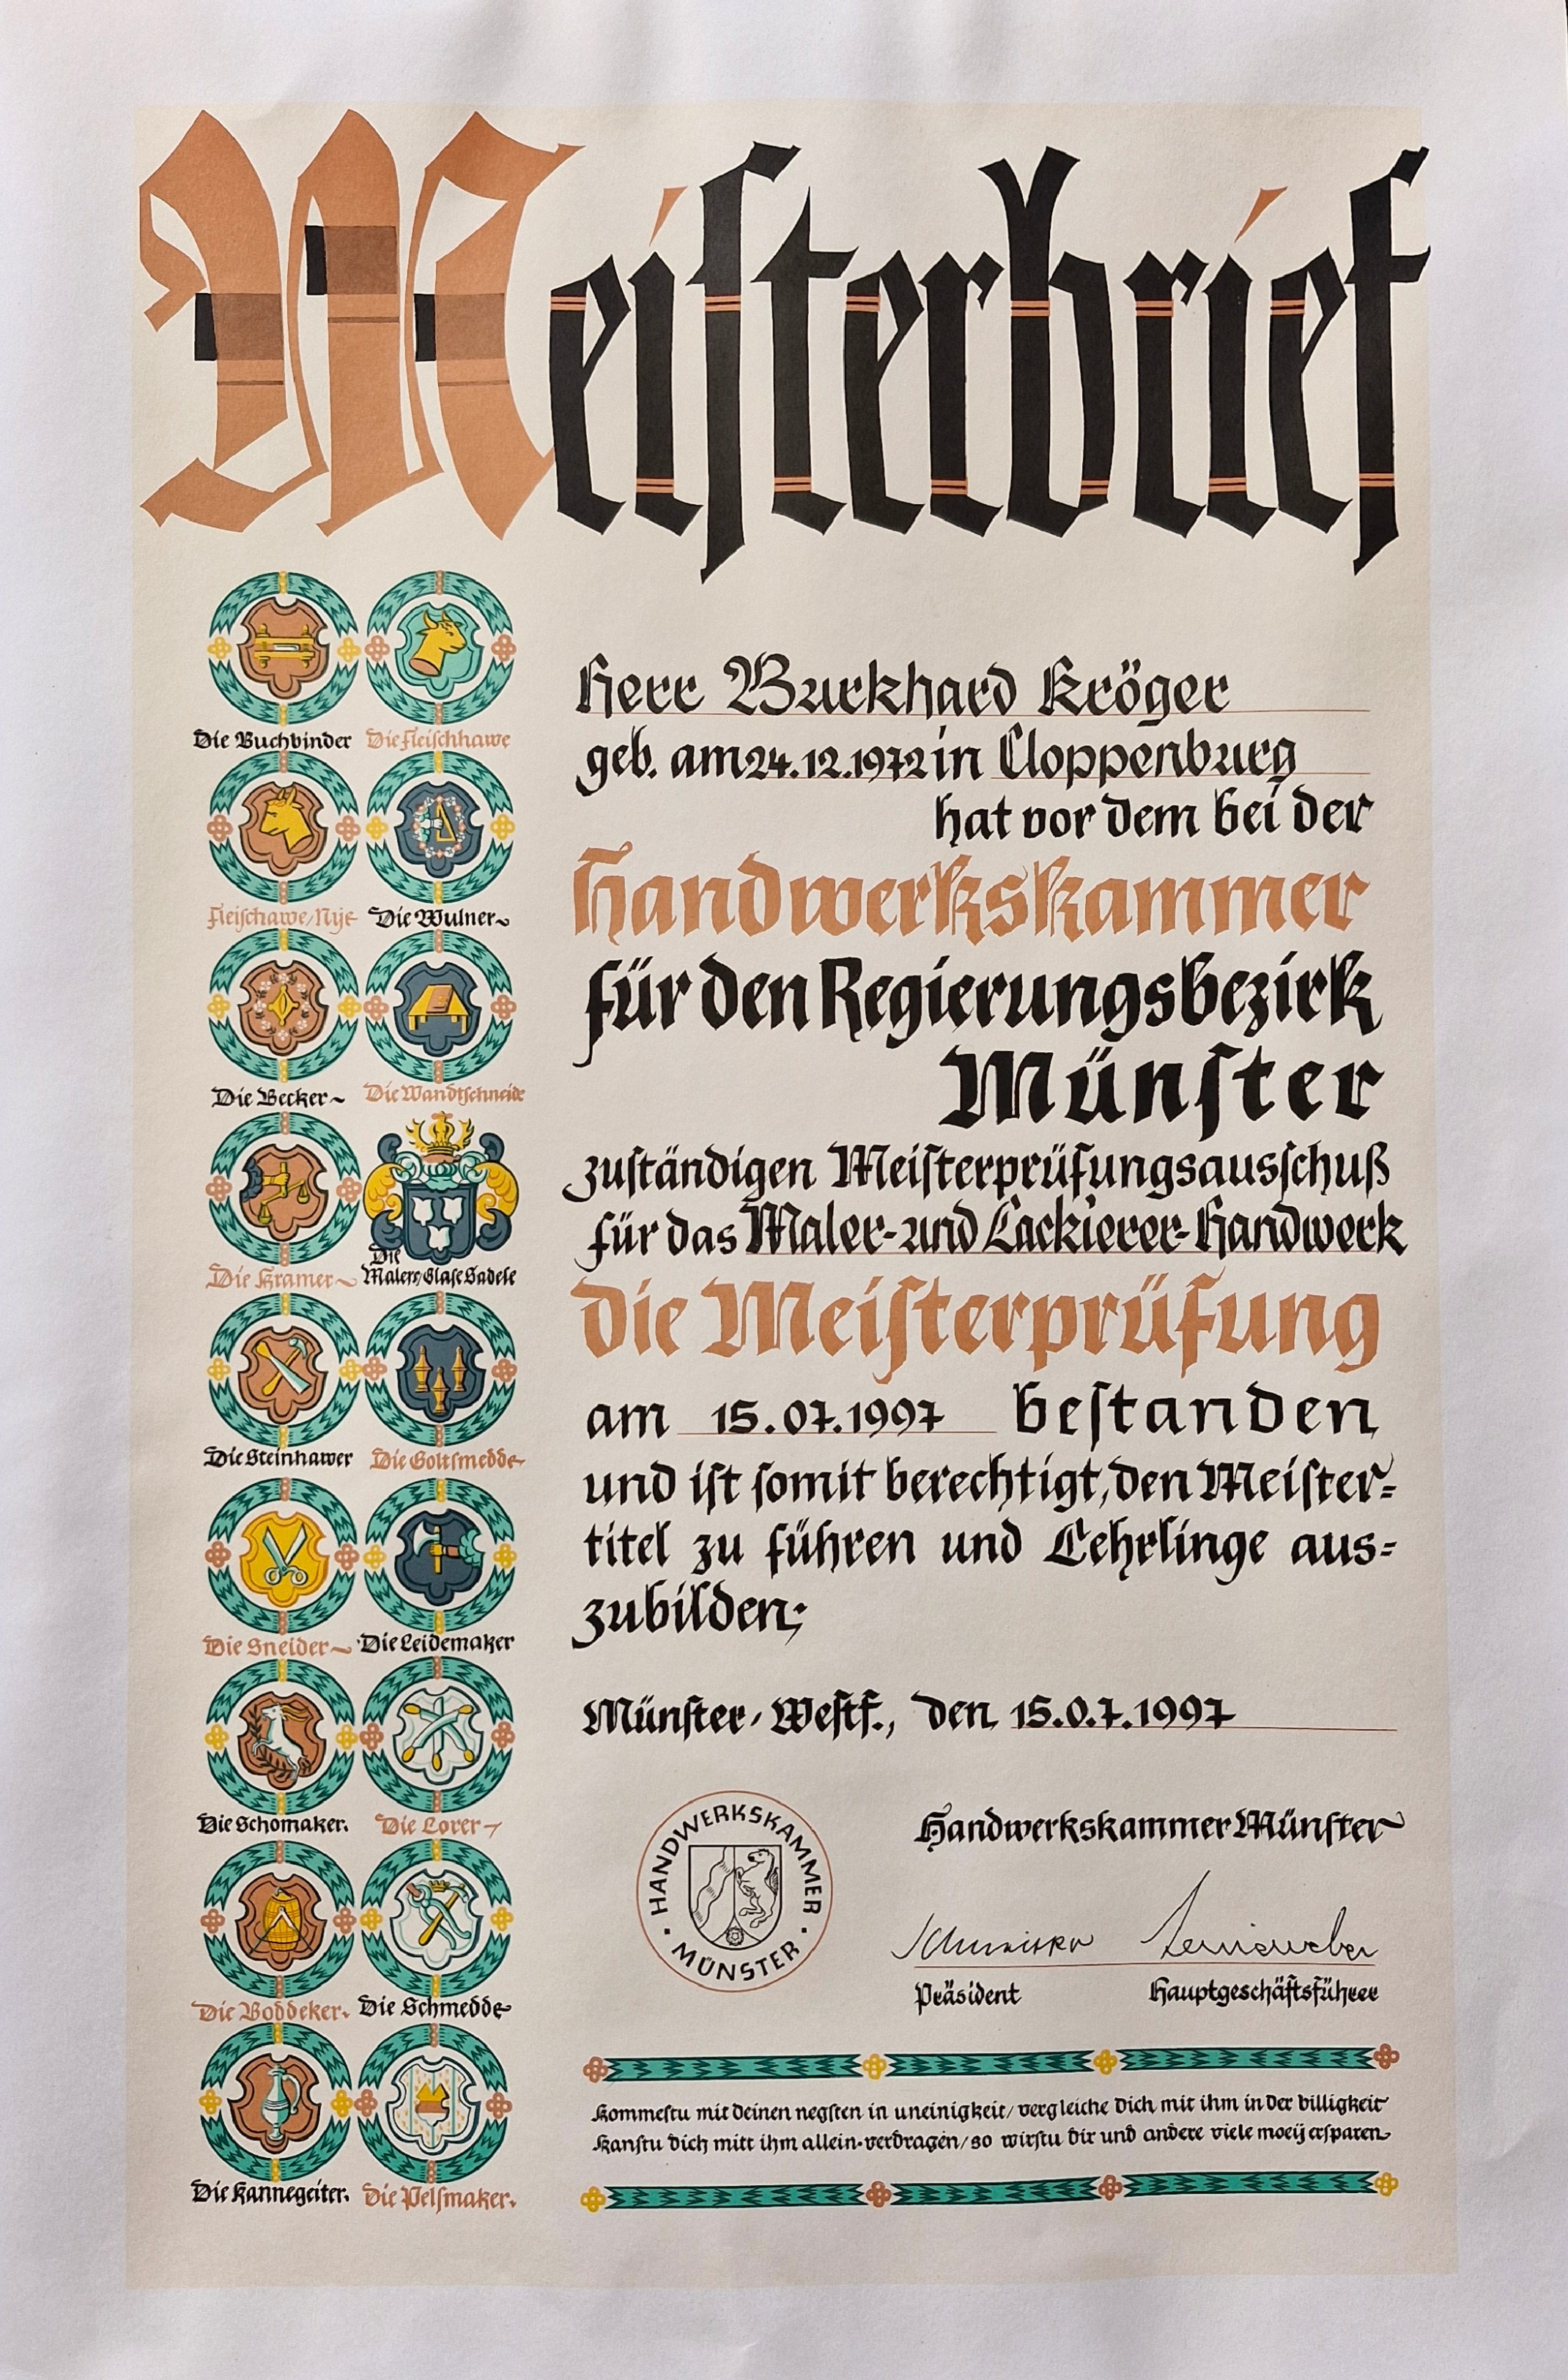 Meisterbrief
Die Buchbinder
Die Fleischhawe
Fleischawe/Nye
Die Wulner
Die Becker
Die Wandtschneide
Die Kramer
Die
Malers Glase Sadele
Die Steinhawer
Die Goltsmedde
Die Sneider
Die Leidemaker
Die Schomaker.
Die Lorer
Die Boddeker.
Die Schmedde
Die Kannegeiter.
Die Pelsmaker.
Herr Burkhard Kröger
geb. am 24.12.1972 in Cloppenburg
hat vor dem bei der
Handwerkskammer
für den Regierungsbezirk
Münster
zuständigen Meisterprüfungsausschuß
für das Maler- und Lackierer-Handwerk
die Meisterprüfung
am 15.07.1997 bestanden
und ist somit berechtigt, den Meister=
titel zu führen und Lehrlinge aus=
zubilden;
Münster/Westf., den 15.0.7.1997
HANDWERKSKAMMER
· MÜNSTER ·
Handwerkskammer Münster
Präsident
Hauptgeschäftsführer
Kommestu mit deinen negsten in uneinigkeit/vergleiche dich mit ihm in der billigkeit
Kanstu dich mitt ihm allein verdragen/so wirstu dir und andere viele moeÿ ersparen